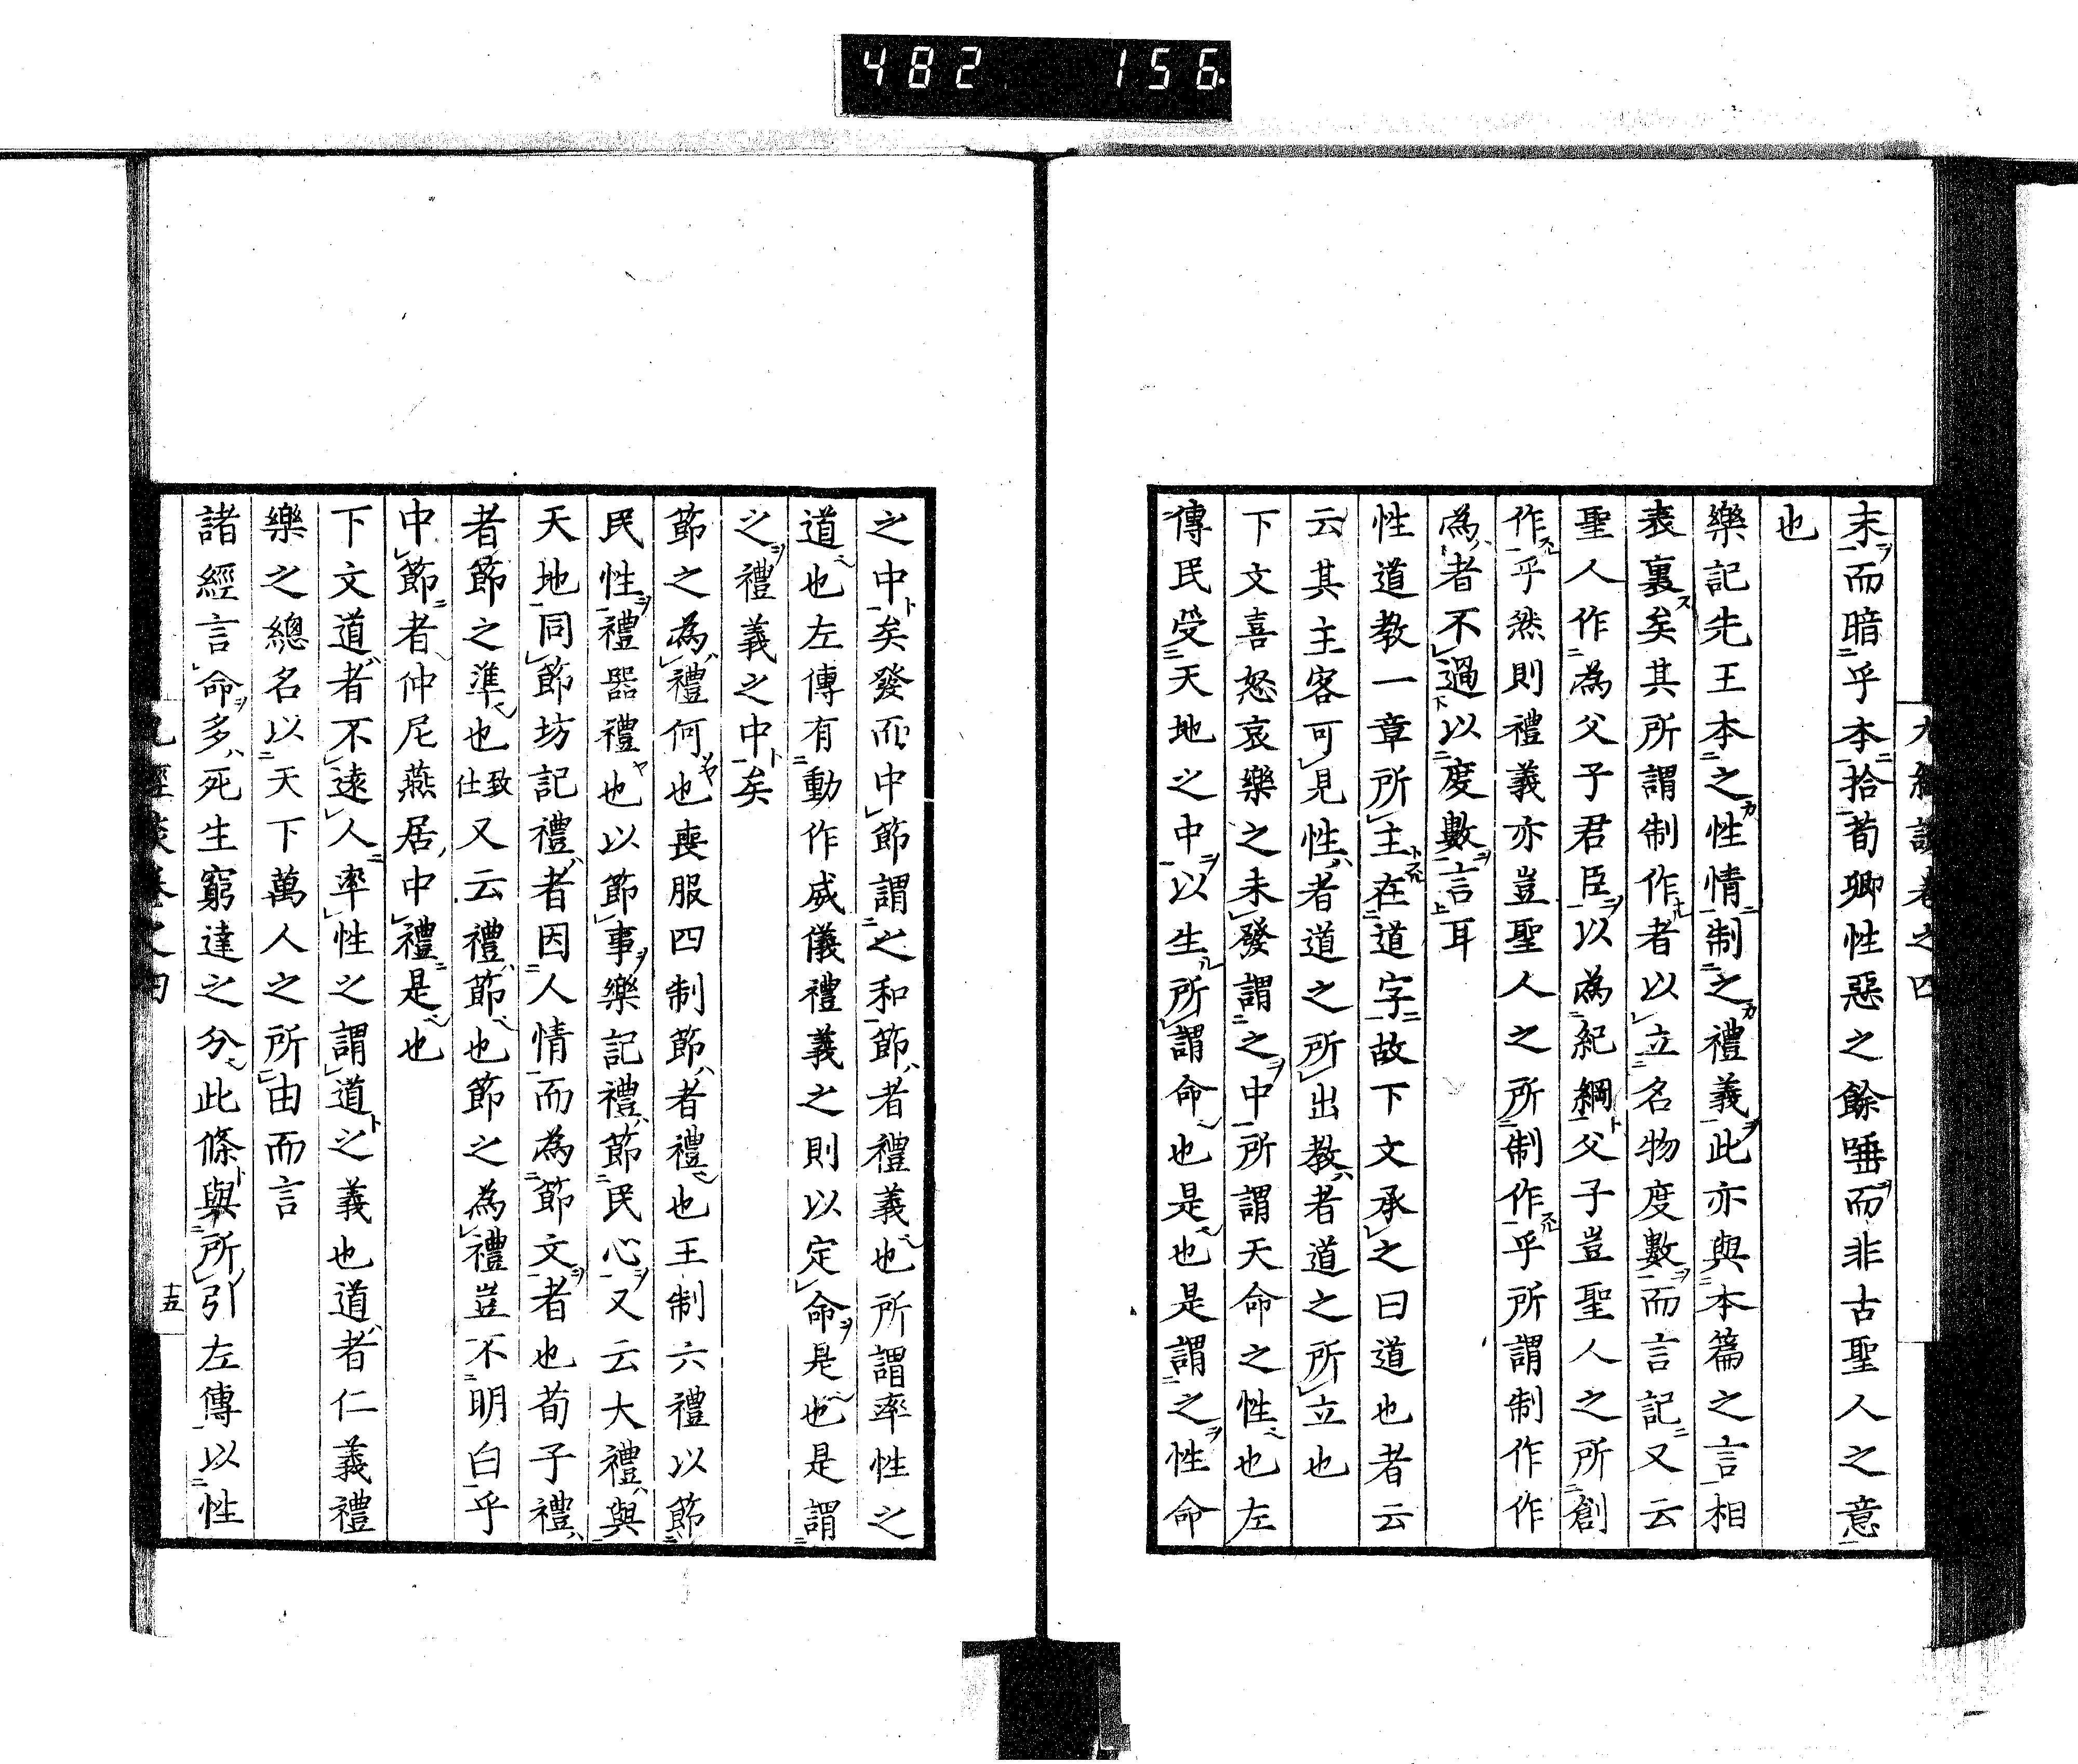 482 156
九經談卷之四
末而暗乎本拾荀卿性惡之餘唾而非古聖人之意
也
樂記先王本之性情制之禮義此亦與本篇之言相
表裏矣其所謂制作者以立名物度數而言記又云
聖人作為父子君臣以為紀綱父子豈聖人之所創
作乎然則禮義亦豈聖人之所制作乎所謂制作作
為者不過以度數言耳
性道教一章所主在道字故下文承之曰道也者云
云其主客可見性者道之所出教者道之所立也
下文喜怒哀樂之未發謂之中所謂天命之性也左
傳民受天地之中以生所謂命也是也是謂之性命
之中矣發而中節謂之和節者禮義也所謂率性之
道也左傳有動作威儀禮義之則以定命是也是謂
之禮義之中矣
節之為禮何也喪服四制節者禮也王制六禮以節
民性禮器禮也以節事樂記禮節民心又云大禮與
天地同節坊記禮者因人情而為節文者也荀子禮
者節之準也致仕又云禮節也節之為禮豈不明白乎
中節者仲尼燕居中禮是也
下文道者不遠人率性之謂道之義也道者仁義禮
樂之總名以天下萬人之所由而言
諸經言命多死生窮達之分此條與所引左傳以性
九經談卷之四
十五